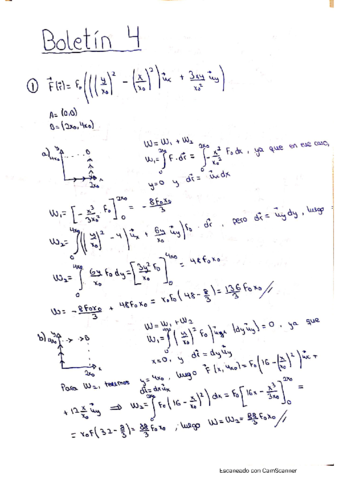 Boletín 4
① F⃗(r⃗) = F₀(((y/x₀)² − (x/x₀)²)u⃗x + 3xy/x₀² u⃗y)
A = (0,0)
B = (2x₀, 4x₀)
a)
W = W₁ + W₂
W₁ = ∫ F·dr⃗ = ∫₀^2x₀ −x²/x₀² F₀ dx, ya que en ese caso,
y=0 y dr⃗ = u⃗x dx
W₁ = [−x³/3x₀² F₀]₀^2x₀ = −8F₀x₀/3
W₂ = ∫₀^4x₀ (((y/x₀)² − 4)u⃗x + 6y/x₀ u⃗y)F₀ · dr⃗, pero dr⃗ = u⃗y dy, luego
W₂ = ∫₀^4x₀ 6y/x₀ F₀ dy = [3y²/x₀ F₀]₀^4x₀ = 48F₀x₀
W = −8F₀x₀/3 + 48F₀x₀ = x₀F₀(48 − 8/3) = 136/3 F₀x₀ //
b)
W = W₁ + W₂
W₁ = ∫₀^4x₀ (y/x₀)² F₀ u⃗x (dy u⃗y) = 0, ya que
x=0, y dr⃗ = dy u⃗y
Para W₂, tenemos y = 4x₀, dr⃗ = dx u⃗x, luego F⃗(x, 4x₀) = F₀(16 − (x/x₀)²)u⃗x +
+ 12 x/x₀ u⃗y ⇒ W₂ = ∫₀^2x₀ F₀(16 − (x/x₀)²) dx = F₀[16x − x³/3x₀²]₀^2x₀ =
= x₀F(32 − 8/3) = 88/3 F₀x₀, luego W = W₂ = 88/3 F₀x₀ //
Escaneado con CamScanner